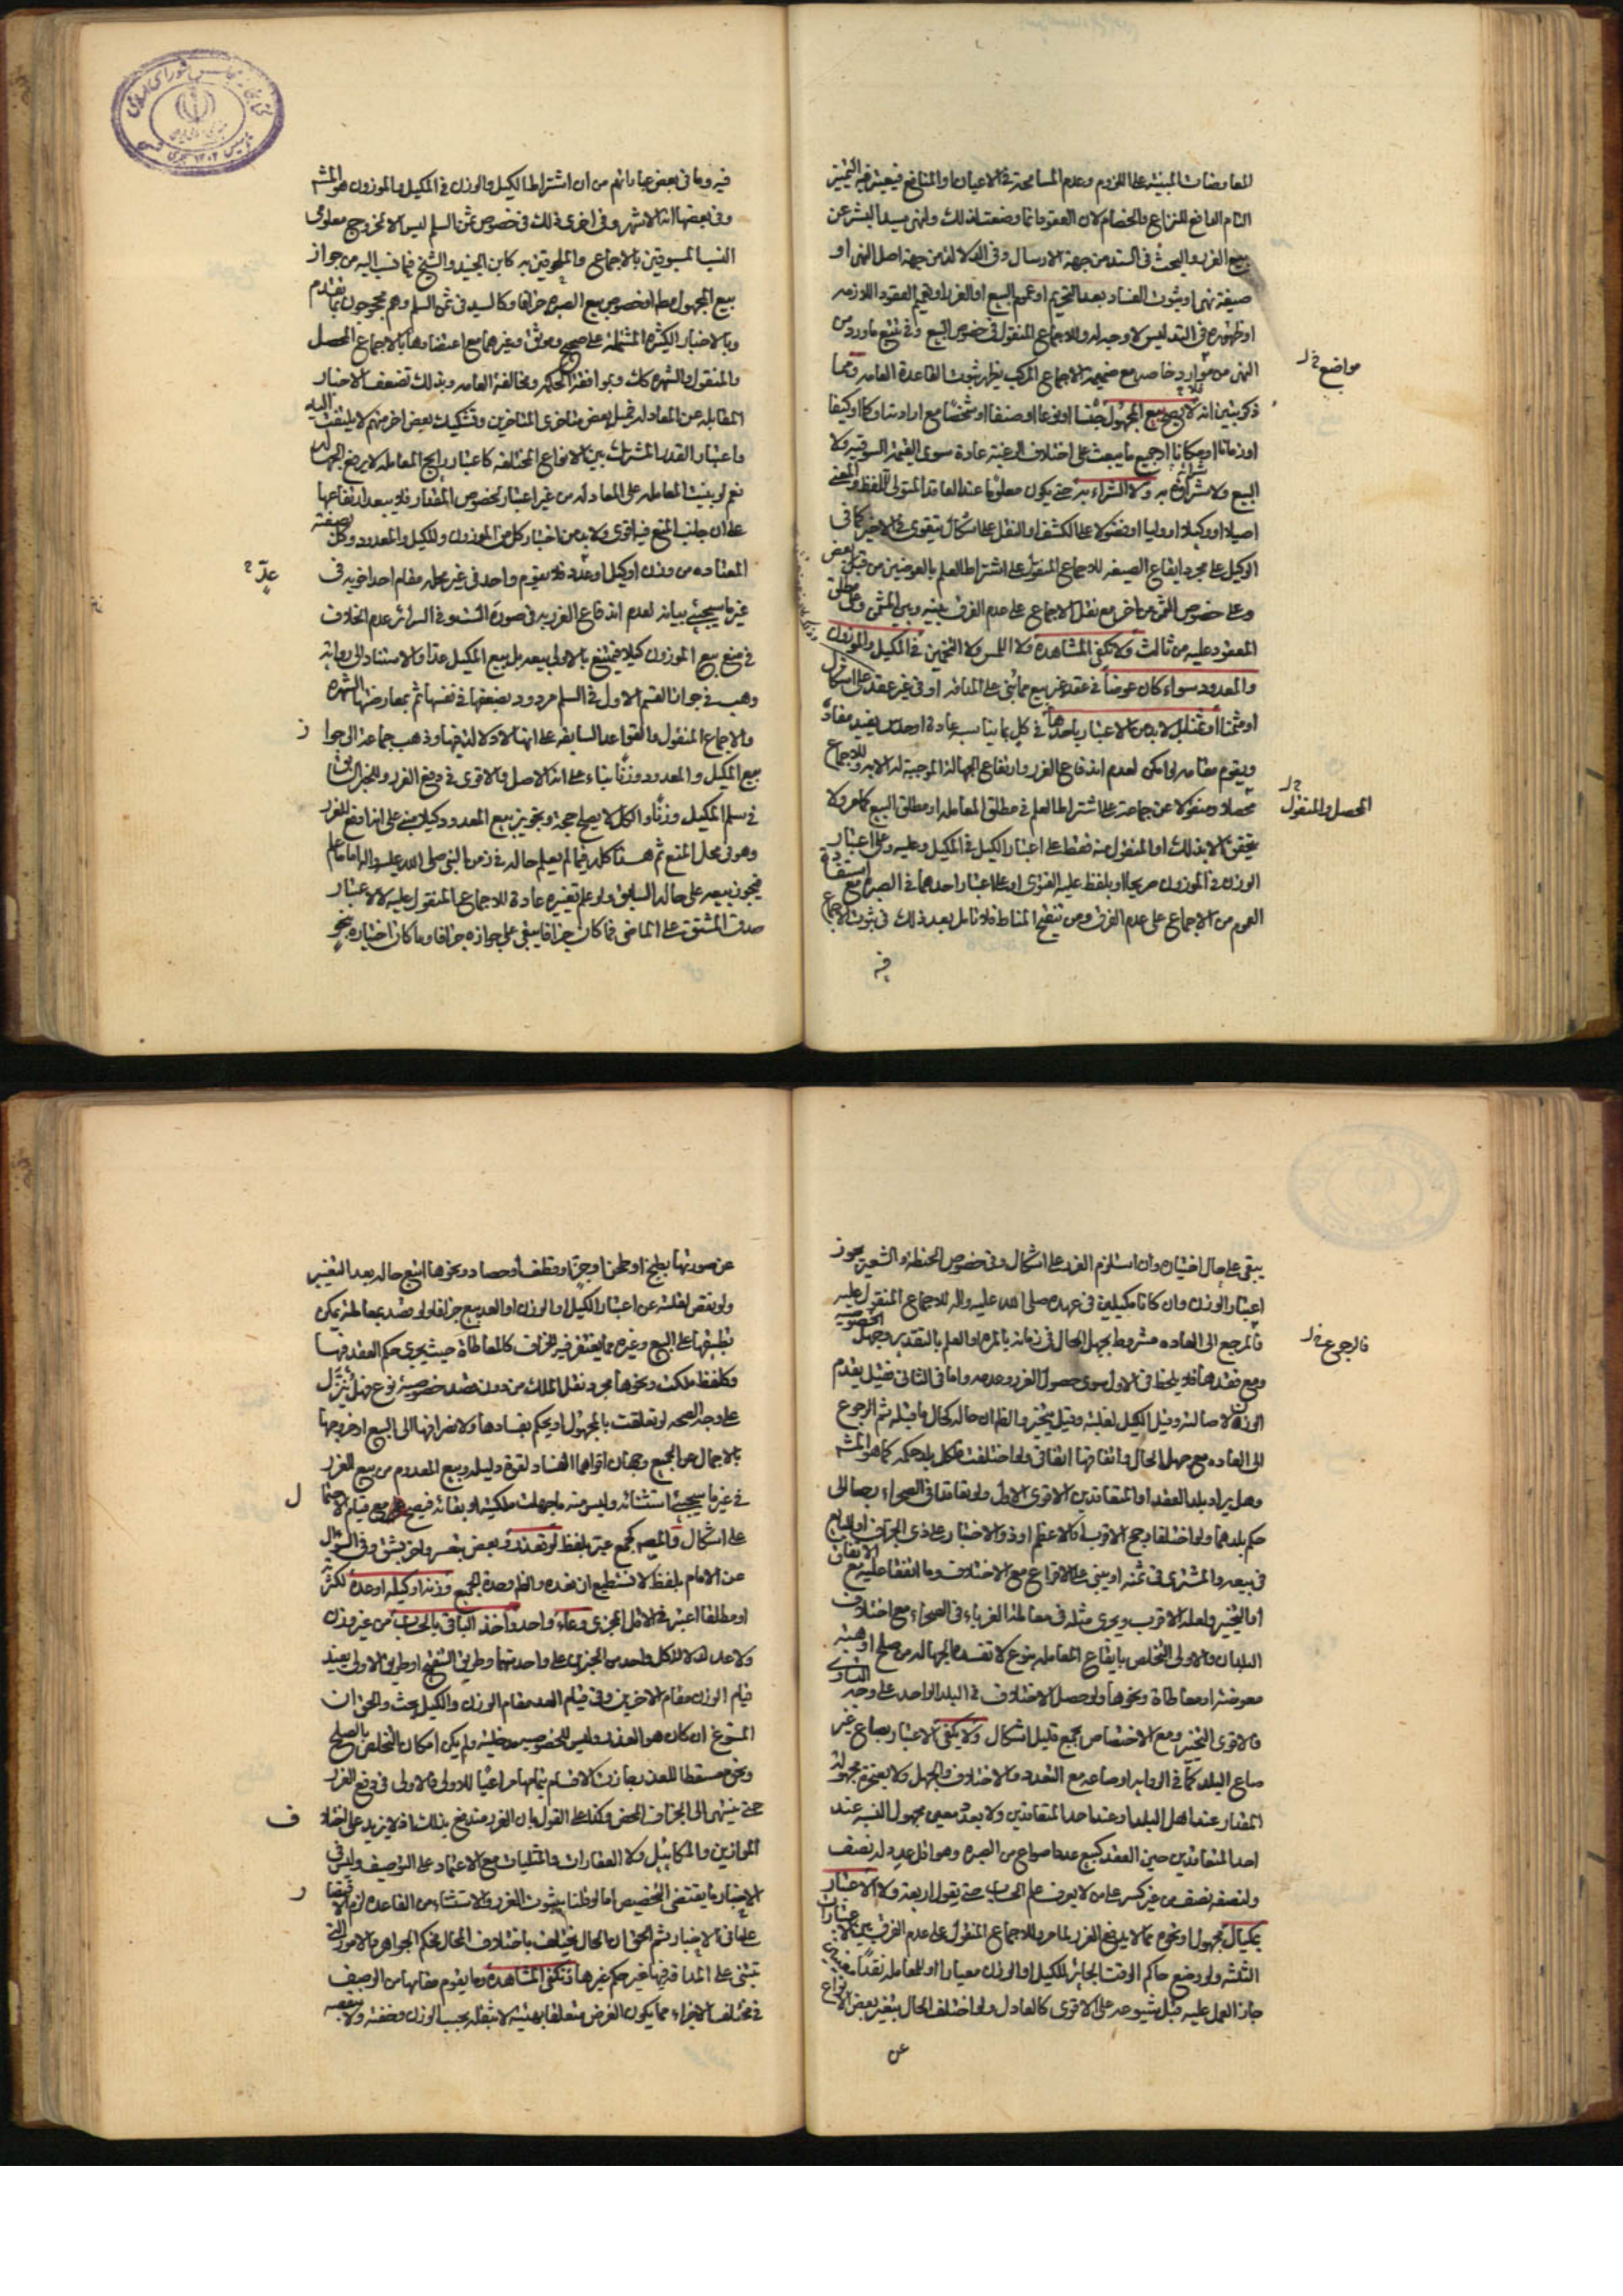 المعاوضات المبنية على اللزوم وعدم المسامحة في الاعيان والمنافع فيعتبر فيه التميز
التام الدافع للنزاع والخصام لان العقود انما وضعت لذلك والنهي سيد البشر عن
بيع الغرر والبحث في السند من جهة الارسال وفي الدلالة من جهة اصل النهي او
صيغة نهى او ثبوت الفساد بعد التحريم او عموم البيع او الغرر او تعميم العقود اللازمه
او ظهوره في التدليس لا وجه له وللاجماع المنقول في خصوص البيع وفي تتبع ما ورد من
النهي من موارد خاصه مع ضميمة الاجماع المركب يظهر ثبوت القاعدة العامه ومما
مواضع خ ل
ذكر يتبين انه فلا يصح بيع المجهول جنسا او نوعا او صنفا او شخصا مع ارادته او كما او كيفا
او زمانا او مكانا او جميع ما يبعث على اختلاف الرغبة عادة سوى القيمة السوقيه ولا
البيع ولا شراؤه به ولا الشراء به حتى يكون معلوما عند العاقد المتولي للفظ والمعنى
اصيلا او وكيلا او وليا او فضولا على الكشف او النقل على اشكال يتقوى في الاخير كما في
الوكيل على مجرد ايقاع الصيغه للاجماع المنقول على اشتراط العلم بالعوضين من قبل بعض
وعلى خصوص الثمن من اخر مع نقل الاجماع على عدم الفرق بينه وبين المثمن وعلى مطلق
المعقود عليه من ثالث ولا تكفي المشاهدة ولا اللمس ولا التخمين في المكيل والموزون
والمعدود سواء كان عوضا في عقد غير بيع مما بني على المداقه او في غير عقد على اشكال
او مثمنا او ثمنا بل لا بد من الاعتبار باحدها في كل بما يناسبه عادة او حدس يفيد مفاده
ويقوم مقامه لو امكن لعدم اندفاع الغرر وارتفاع الجهالة الموجبة له الا به وللاجماع
محصلا ومنقولا عن جماعة على اشتراط العلم في مطلق المعامله او مطلق البيع كما مر ولا
المحصل والمنقول خ ل
يتحقق الا بذلك او المنقول منه فقط على اعتبار الكيل في المكيل وعليه وعلى اعتبار
الوزن في الموزون صريحا او بلفظ عليه الفتوى او على اعتبار احدهما في الصبره مع استفادة
العموم من الاجماع على عدم الفرق ومن تنقيح المناط فلا تامل بعد ذلك في ثبوت الاجماع
فيه
فيه وما في بعض عباراتهم من ان اشتراط الكيل والوزن في المكيل والموزون هو المشه
وفي بعضها انه الاشهر وفي اخرى ذلك في خصوص ثمن السلم ليس الا لخروج معلومي
النسب المسبوقين بالاجماع والملحوقين به كابن الجنيد والشيخ فيما نسب اليه من جواز
بيع المجهول مطلقا وخصوص بيع الصبره جزافا وكالسيد في ثمن السلم وهم محجوجون بما تقدم
وبالاخبار الكثيره المشتملة على صحيح وموثق وغيرهما مع اعتضادها بالاجماع المحصل
والمنقول والشهره كك وبموافقة الحكمه ومخالفة العامه وبذلك تضعف الاخبار
المقابله عن المعادله فميل بعض متاخري المتاخرين وتشكيك بعض اخر منهم لا يلتفت اليه
واعتبار القدر المشترك بين الانواع المختلفه كاعتبار رابع المعامله لا يرفع الجهاله
نعم لو بنيت المعامله على المعادله من غير اعتبار لخصوص المقدار فلا يبعد ارتفاعها
على ان جانب المنع فيه اقوى ولا بد من اختبار كل من الموزون والمكيل والمعدود وكل بصفته
المعتاده من وزن او كيل او عدد فلا يقوم واحد في غير محله مقام احد اخويه في
عدّ خ
غير ما سيجيئ بيانه لعدم اندفاع الغرر به في صورة المستند وفي السرائر عدم الخلاف
في منع بيع الموزون كيلا فيمتنع بالاولى بيعه بل بيع المكيل عدا والاستناد الى رواية
وهب في جواز القسم الاول في السلم مردود بضعفها في نفسها ثم بمعارضتها الشهره
والاجماع المنقول والقواعد السابقه على انها لا دلالة فيها وذهب جماعة الى جواز
بيع المكيل والمعدود وزنا بناء على انه الاصل والاقوى في دفع الغرر وللخبر الوارد
في سلم المكيل وزنا والكل لا يصلح حجة وتجويز بيع المعدود كيلا مبني على اندفاع الغرر
وهو في محل المنع ثم هذا كله فيما لم يعلم حاله في زمن النبي صلى الله عليه واله اما ما علم
فيجوز بيعه على حاله السابق ولو علم تغيره عادة للاجماع المنقول عليه لا لاعتبار
صدق المشتق على الماضي فما كان جزافا يبقى على جوازه جزافا وما كان اختباره بنحو
يبقى على حال اختياره وان استلزم الغرر على اشكال وفي خصوص الحنطة والشعير يجوز
اعتبار الوزن وان كانا مكيلين في عهده صلى الله عليه واله للاجماع المنقول عليه
فالمرجع الى العاده مشروط بجهل الحال في زمانه بالمره او العلم بالتقدير وجهل الخصوصية
فالرجوع خ ل
ومع فقدهما فلا يلحظ في الاول سوى حصول الغرر وعدمه واما في الثاني فقيل يقدم
الوزن لاصالته وقيل الكيل لغلبته وقيل يتخير والظاهر ان حاله كحال ما قبله ثم الرجوع
الى العاده مع جهل الحال واتفاقها اتفاقي ولو اختلفت فلكل بلد حكمه كما هو المشه
وهل يراد بلد العقد او المتعاقدين الاقوى الاول ولو تعاقدا في الصحراء رجعا الى
حكم بلدهما ولو اختلفا رجح الاقرب او الاعظم او ذو الاختبار على ذي الجزاف او البايع
في بيعه والمشتري في ثمنه او يبني على الاقراع مع الاختلاف وما اتفقا عليه مع الاتفاق
او التخيير ولعله الاقرب ويجري مثله في معاملة الغرباء في الصحراء مع اختلاف
البلدان والاولى التخلص بايقاع المعامله بنوع لا تفسده الجهاله من صلح او هبة
معوضة او معاطاة ونحوها ولو حصل الاختلاف في البلد الواحد على وجه التساوي
فالاقوى التخيير ومع الاختصاص بجمع قليل اشكال ولا يكفي الاعتبار بصاع غير
صاع البلد كما في الروايه او صاعه مع التعدد والاختلاف والجهل ولا بصنجة مجهولة
المقدار عند اهل البلد او عند احد المتعاقدين ولا بعدد معين مجهول النسبه عند
احد المتعاقدين حين العقد كبيع عددا صواع من الصبره وهو اقل عدد له نصف
ولنصفه نصف من غير كسر على من لا يعرف علم الحساب حتى يقول اربعة ولا الاعتبار
بمكيال مجهول ونحوه مما لا يدفع الغرر لما مر وللاجماع المنقول على عدم الفرق بين الاعتبارات
الثلثة ولو وضع حاكم الوقت الجائر للكيل او الوزن معيارا او للمعامله نقدا معينا
جاز العمل عليه قبل شيوعه على الاقوى كالعادل ولو اختلف الحال بتغير بعض الانواع
عن
عن صورتها بطبخ او طحن او جز او قطف او حصاد ونحوها اتبع حاله بعد التغيير
ولو نقص لقلته عن اعتبار الكيل او الوزن او العد بيع جزافا ولو قصد بمعاملة يمكن
تطبيقها على البيع وغيره مما يغتفر فيه الجزاف كالمعاطاة حيث يجري حكم العقد فيها
وكلفظ ملكت ونحوها مجرد نقل الملك من دون قصد خصوصية نوع فهل ينزل
على وجه الصحه لو تعلقت بالمجهول او يحكم بفسادها ولانصرافها الى البيع او خروجها
بالاجمال عن الجميع وجهان اقواهما الفساد لقوة دليله وبيع المعدوم من بيع الغرر
في غير ما سيجيئ استثنائه وليس منه ما جهلت ملكيته او بقائه فيصح مع قيام الاحتمال
على اشكال والمص كجمع عبر بلفظ لو تعذر وبعض بتعسر واخر بشق وفي السؤال
عن الامام بلفظ لا نستطيع ان نعده والظ وحدة الجميع وزنه او كيله او عده لكثرته
او مطلقا اعتبر في الاقل المجزي وعاء واحد واخذ الباقي بالحساب من غير وزن
ولا عد لدلالة كل واحد من الخبرين على واحد منهما وطريق التنقيح او طريق الاولى يفيد
قيام الوزن مقام الاخرين وفي قيام العد مقام الوزن والكيل بحث والحق ان
المسوغ ان كان هو العذر وليس للخصوصيه مدخلية ولم يكن امكان التخلص بالصلح
ونحوه مسقطا للعذر جازت الاقسام بتمامها مراعيا للاولى فالاولى في دفع الغرر
حتى ينتهي الى الجزاف المحض وكذا على القول بان الغرر مندفع بذلك اذ لا يزيد على اختلاف
الموازين والمكاييل ولا العقارات والمثليات مع الاعتماد على التوصيف وليس في
الاخبار ما يقتضي التخصيص اما لو قلنا بثبوت الغرر والاستثناء من القاعده لزم الاقتصار
على ما في الاخبار ثم الحق ان الحال يختلف باختلاف المحال فحكم الجواهر والامور التي
تبتنى على المداقة فيها غير حكم غيرها وتكفي المشاهده وما يقوم مقامها من الوصف
في مختلف الاجزاء مما يكون الغرض متعلقا بهيئته لا بثقله بحسب الوزن وخفته ولا